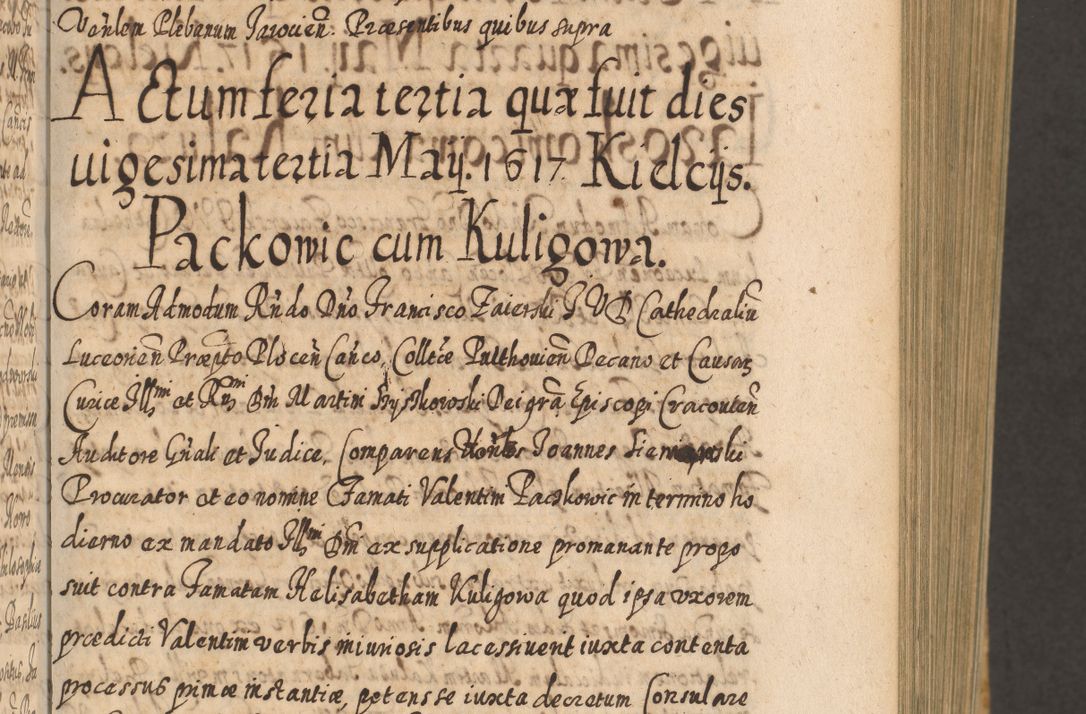 Vanlem Plebanum Jarocien. Præsentibus quibus supra
Actum feria tertia quæ fuit dies
uigesima tertia Maij. 1617. Kielcijs.
Packowic cum Kuligowa.
Coram Admodum Rñdo Dño Francisco Zaierski J V D Cathedraliũ
Luceorieñ Præpto Ploceñ Cañco, Colltæ Pulthouieñ Decano et Causar
Curiæ Illmi et Rmi Dñi Martini Szyszkowski Dei grã Episcopi Cracouieñ
Auditore Gñali et Judice, Comparens Joannes
Procurator et eo nomine Famati Valentini Paczkowic in termino ho
dierno ex mandato Illmi Dñi ex supplicatione promanante propo
suit contra Famatam Helisabetham Kuligowa quod ipsa vxorem
prædicti Valentini verbis iniuriosis lacessiuerit iuxta contenta
processus primæ instantiæ, petens se iuxta decretum Consulare